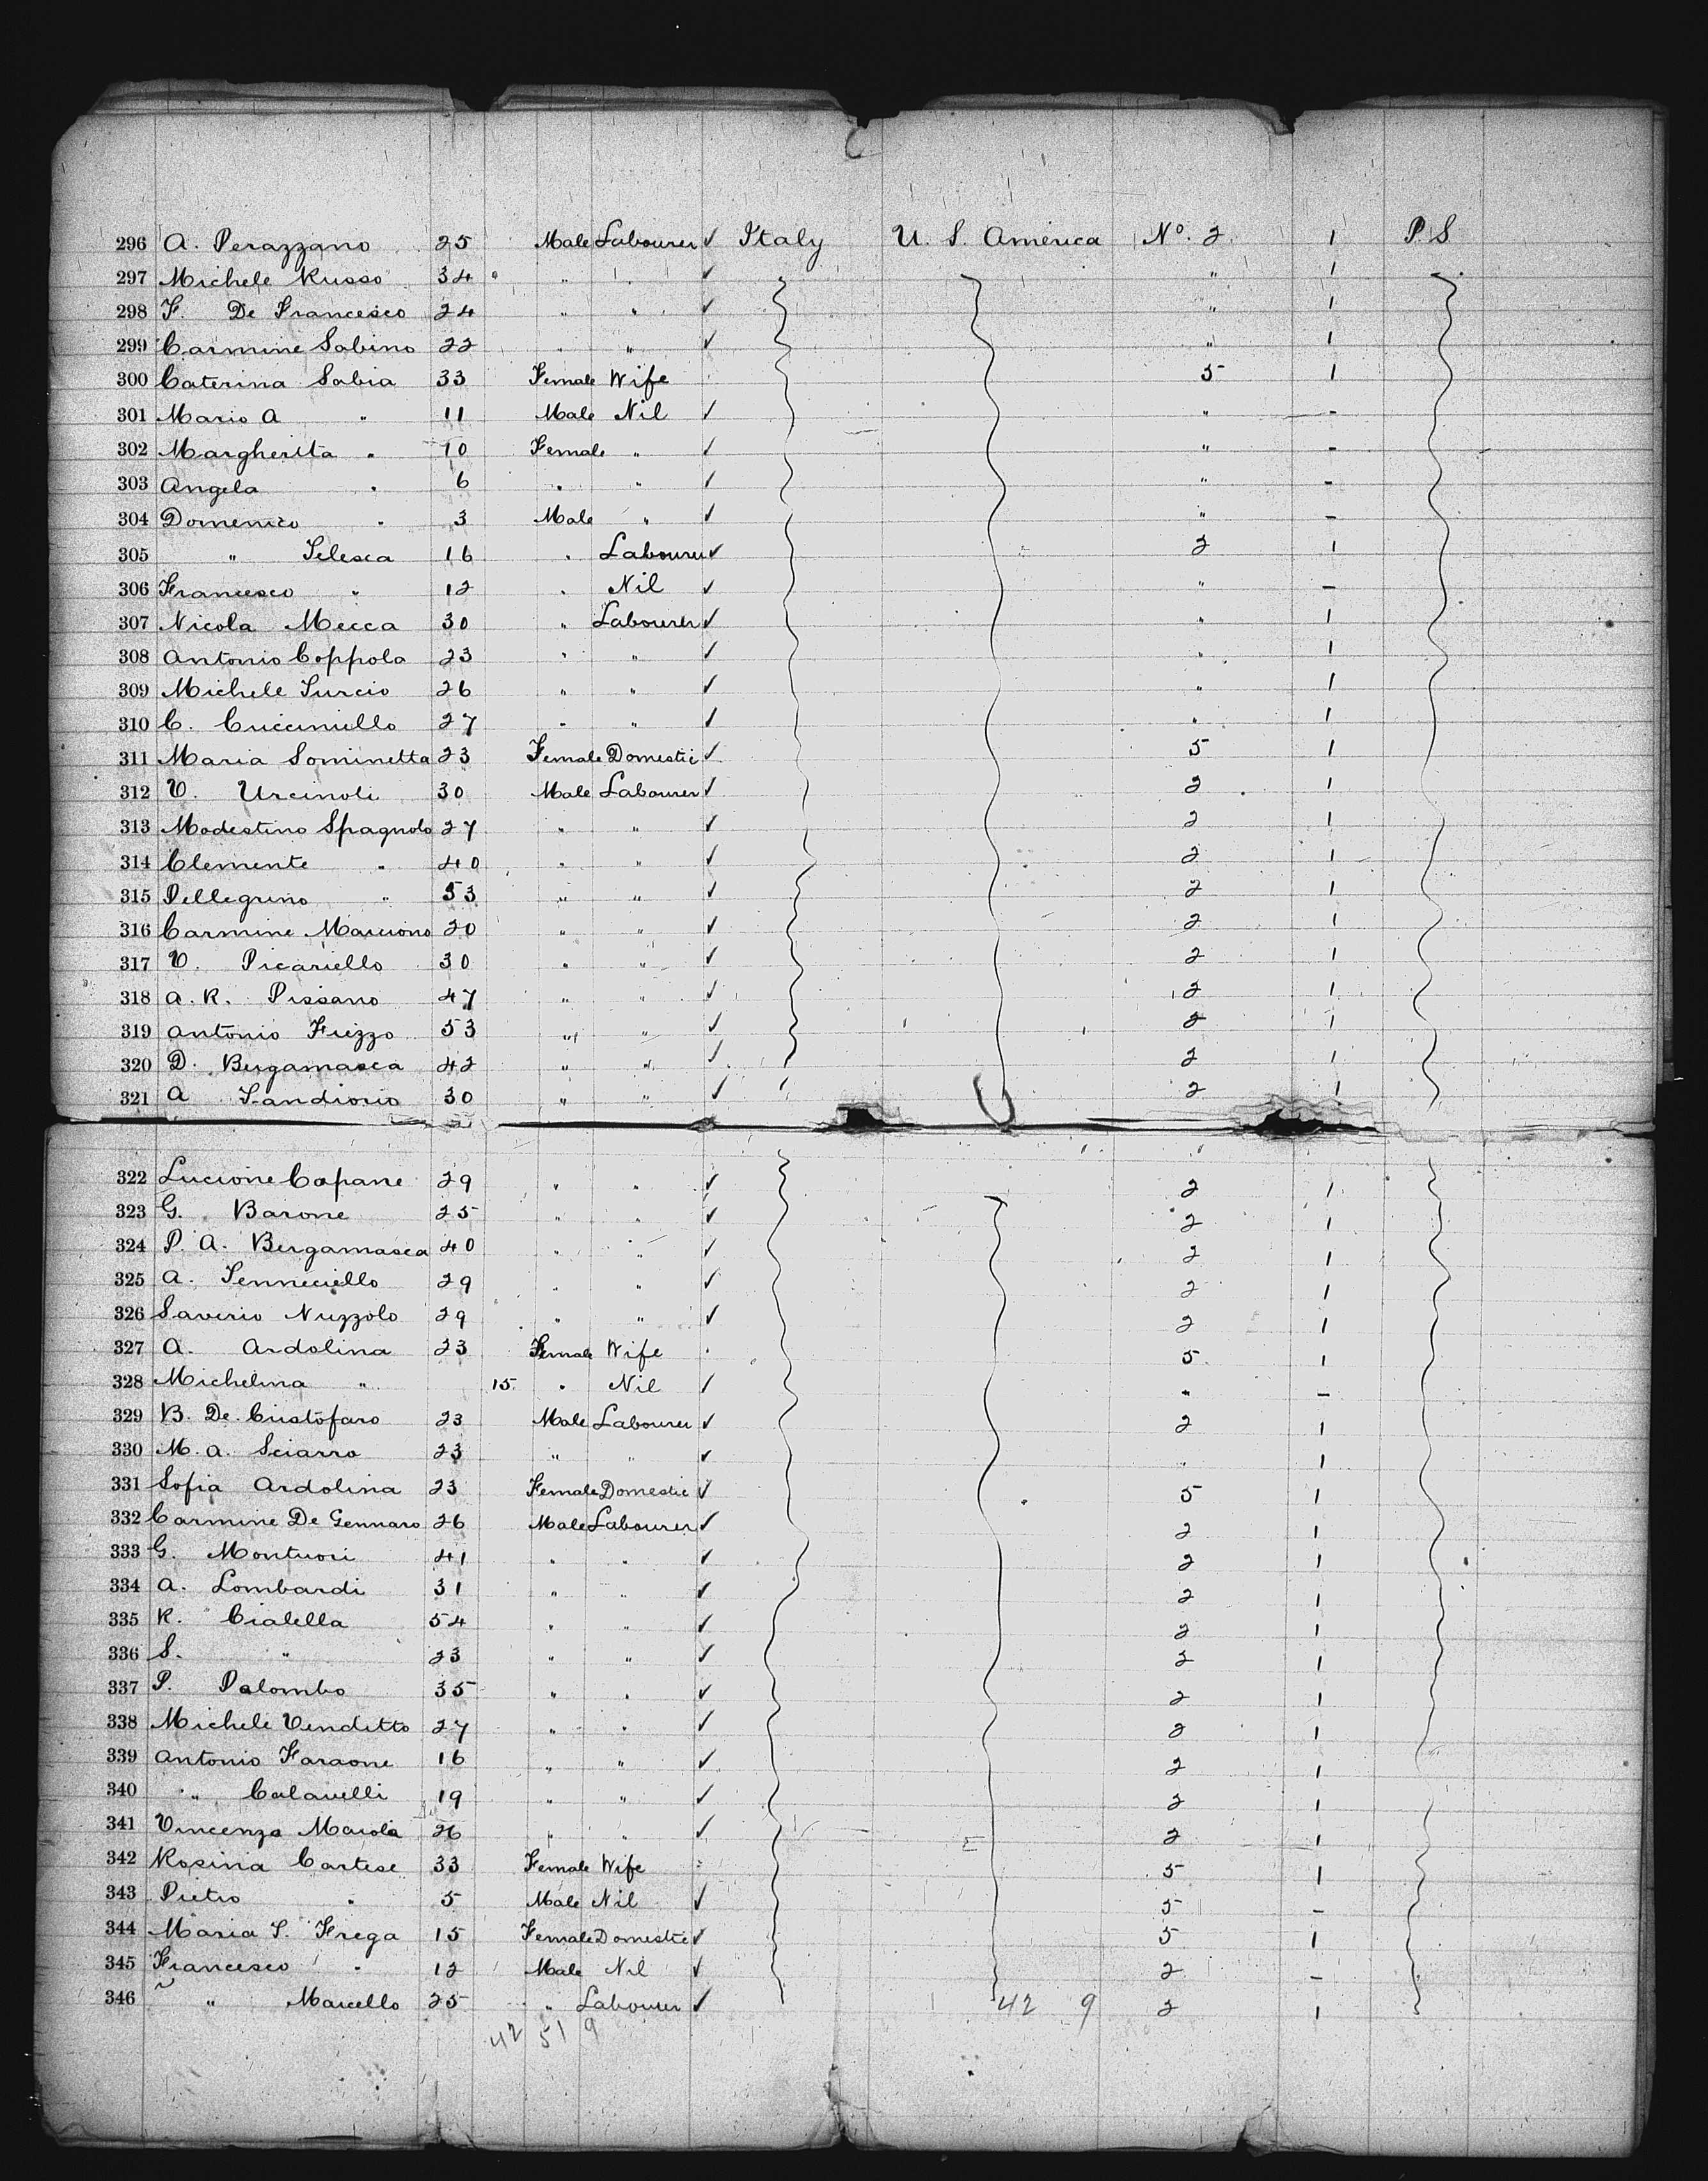 296 A. Perazzano 25 Male Labourer ✓ Italy U. S. America No. 2 1 P. S.
297 Michele Russo 34 " " " ✓ " 1
298 F. De Francesco 24 " " ✓ " 1
299 Carmine Sabino 22 " " ✓ " 1
300 Caterina Sabia 33 Female Wife 5 1
301 Mario A " 11 Male Nil ✓ " -
302 Margherita " 10 Female " ✓ " -
303 Angela " 6 " " ✓ " -
304 Domenico " 3 Male " ✓ " -
305 " Telesca 16 " Labourer ✓ 2 1
306 Francesco " 12 " Nil ✓ " -
307 Nicola Mecca 30 " Labourer ✓ " 1
308 Antonio Coppola 23 " " ✓ " 1
309 Michele Turcio 26 " " ✓ " 1
310 C. Cucciniello 27 " " ✓ " 1
311 Maria Sominetta 23 Female Domestic ✓ 5 1
312 V. Urcinoli 30 Male Labourer ✓ 2 1
313 Modestino Spagnolo 27 " " ✓ 2 1
314 Clemente " 40 " " ✓ 2 1
315 Pellegrino " 53 " " ✓ 2 1
316 Carmine Marciono 20 " " ✓ 2 1
317 V. Picariello 30 " " ✓ 2 1
318 A. R. Pissano 47 " " ✓ 2 1
319 Antonio Frezzo 53 " " ✓ 2 1
320 D. Bergamasca 42 " " ✓ 2 1
321 A Tandiorio 30 " " ✓ 2 1
322 Lucione Capane 29 " " ✓ 2 1
323 G. Barone 25 " " ✓ 2 1
324 P. A. Bergamasca 40 " " ✓ 2 1
325 A. Tenneciello 29 " " ✓ 2 1
326 Saverio Nuzzolo 29 " " ✓ 2 1
327 A. Ardolina 23 Female Wife 5 1
328 Michelina " 15 " Nil ✓ " -
329 B. De Cristofaro 23 Male Labourer ✓ 2 1
330 M. A. Sciarra 23 " " ✓ " 1
331 Sofia Ardolina 23 Female Domestic ✓ 5 1
332 Carmine De Gennaro 26 Male Labourer ✓ 2 1
333 G. Montuori 41 " " ✓ 2 1
334 A. Lombardi 31 " " ✓ 2 1
335 R. Cialella 54 " " ✓ 2 1
336 S. " 23 " " ✓ 2 1
337 P. Palombo 35 " " ✓ 2 1
338 Michele Venditto 27 " " ✓ 2 1
339 Antonio Faraone 16 " " ✓ 2 1
340 " Calavelli 19 " " ✓ 2 1
341 Vincenza Maiola 26 " " ✓ 2 1
342 Rosina Cortese 33 Female Wife 5 1
343 Pietro " 5 Male Nil ✓ 5 -
344 Maria T. Frega 15 Female Domestic ✓ 5 1
345 Francesco " 12 Male Nil ✓ 2 -
346 " Marcello 25 " Labourer ✓ 42 9 2 1
42 51 9